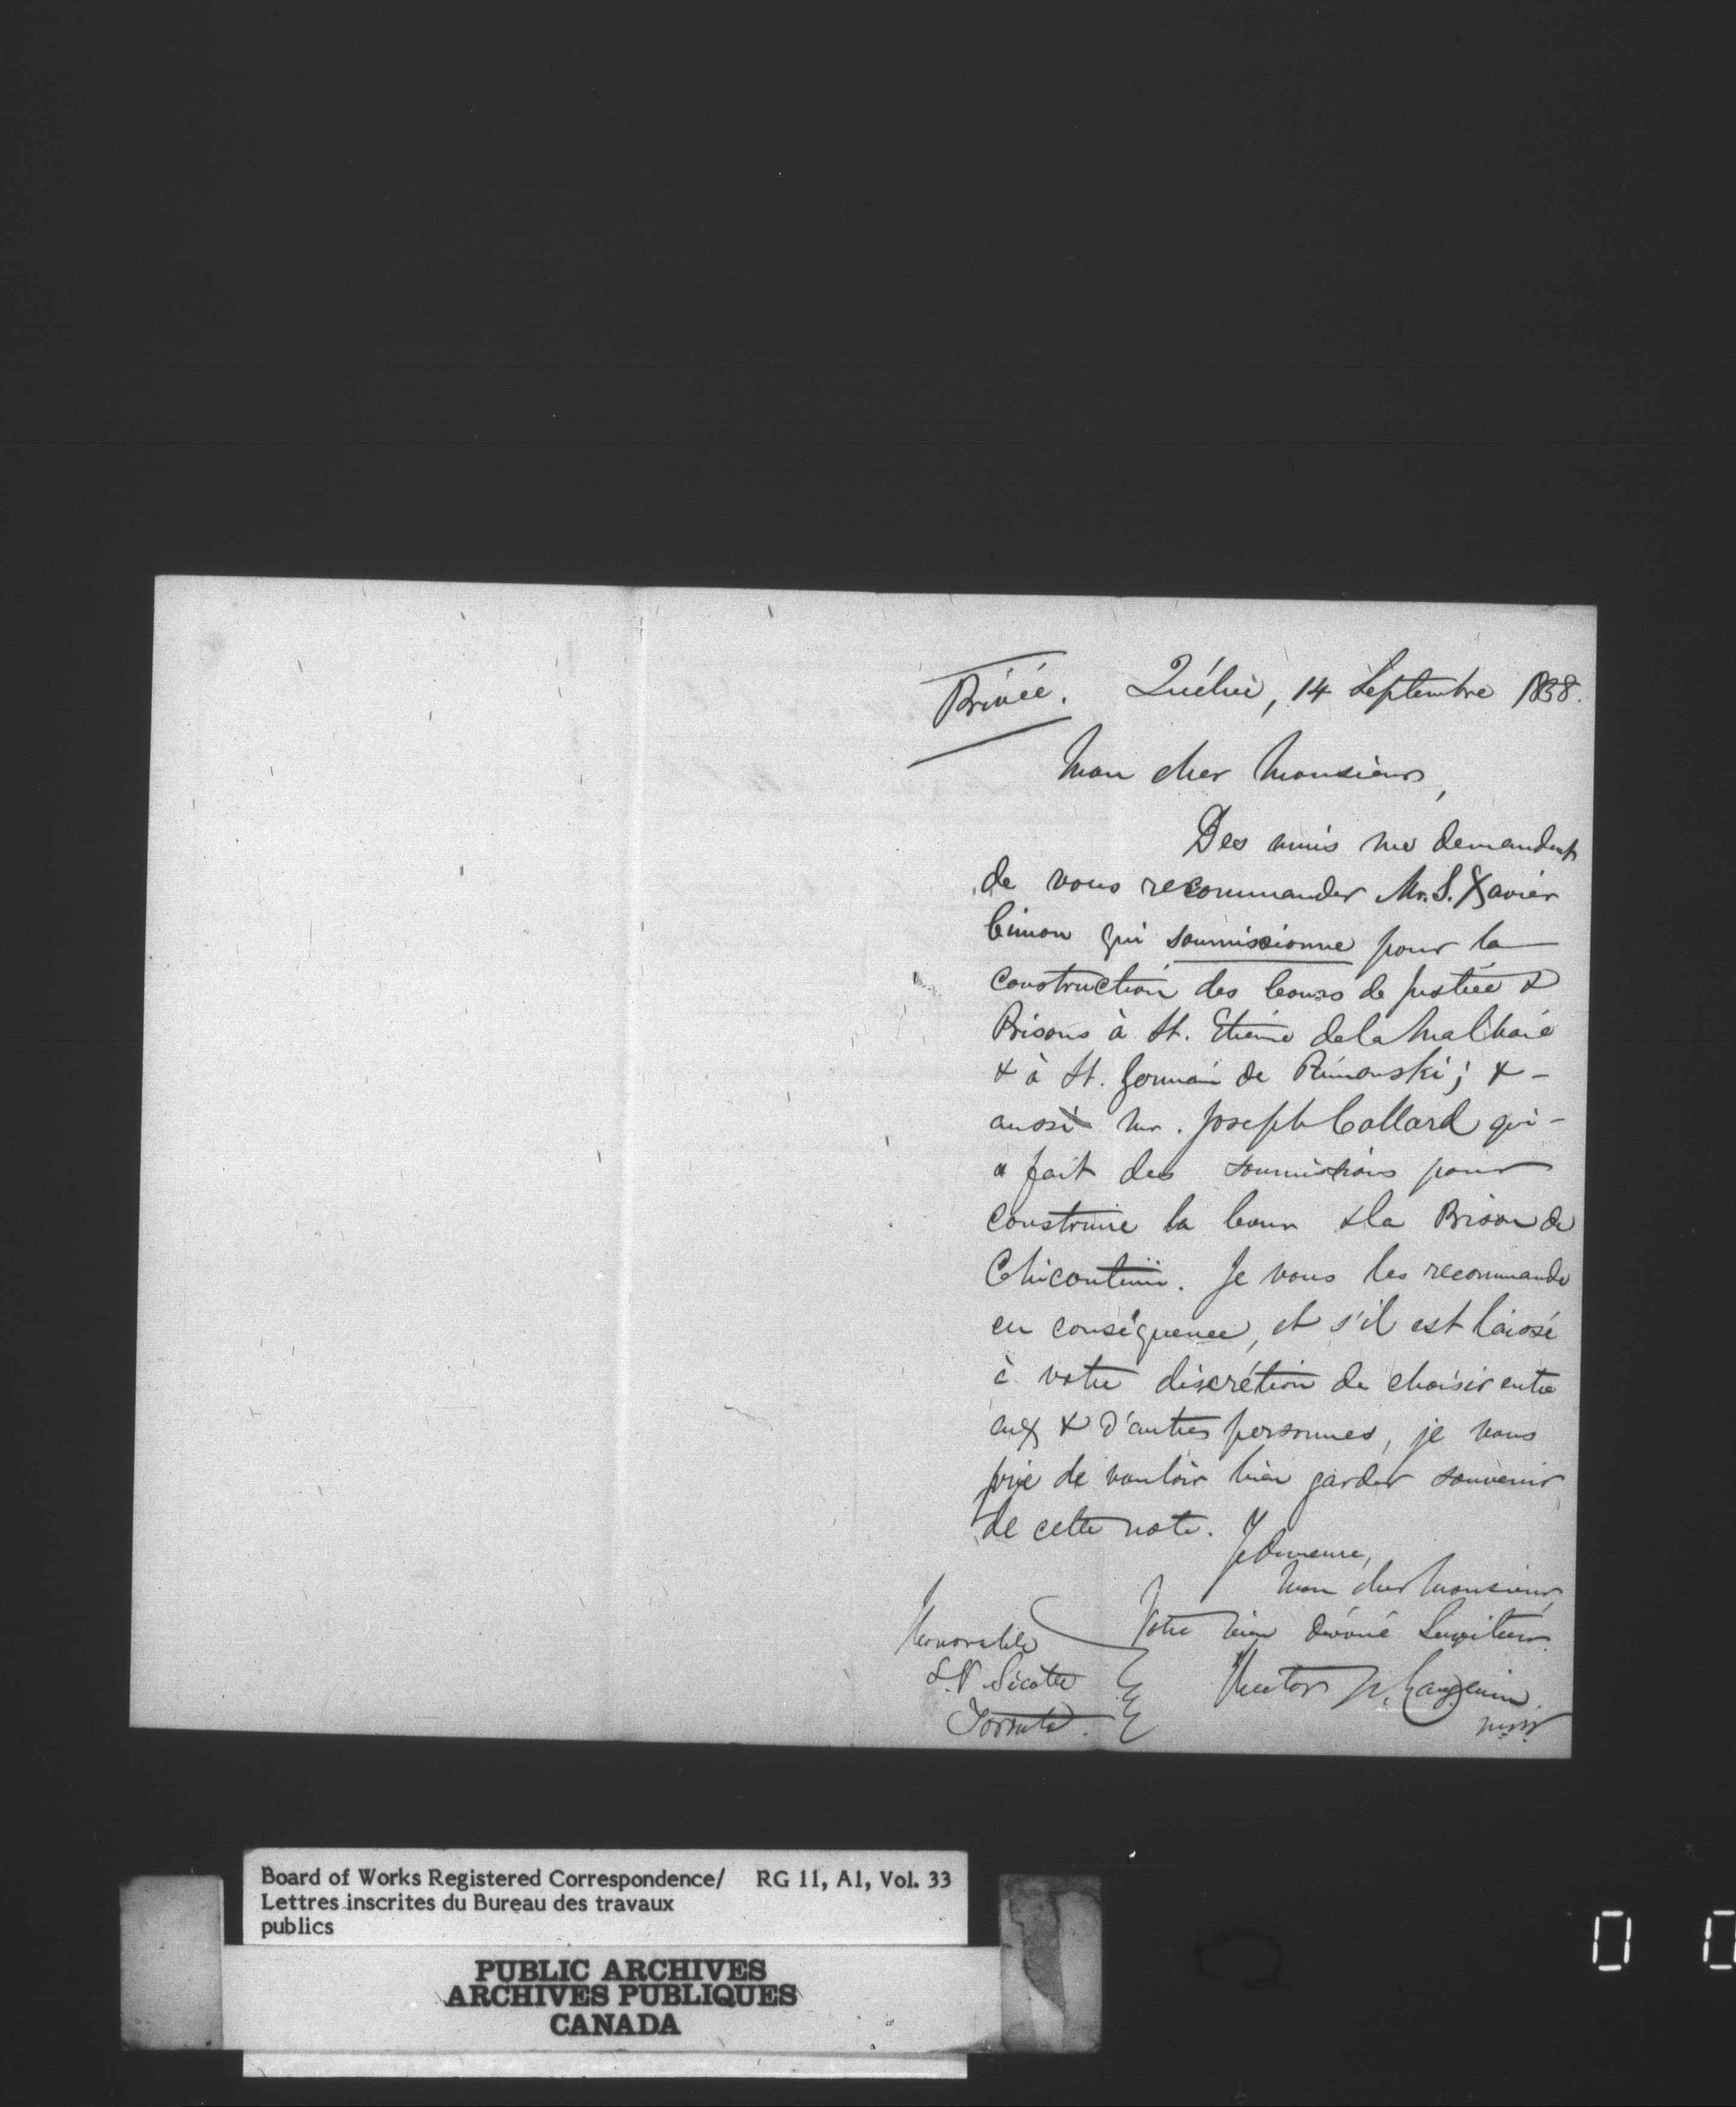 Privée. Québec, 14 Septembre 1858.
Mon cher Monsieur,
Des amis me demandent
de vous recommander Mr. S. Xavier
Cimon qui soumissionne pour la
construction des Cours de Justice &
Prisons à St. Etienne de la Malbaie
& à St. Germain de Rimouski; & -
aussi Mr. Joseph Collard qui -
a fait des soumissions pour
construire la Cour & la Prison de
Chicoutimi. Je vous les recommande
en conséquence, et s'il est laissé
à votre discrétion de choisir entre
eux & d'autres personnes, je vous
prie de vouloir bien garder souvenir
de cette note.
Je demeure,
Mon cher Monsieur,
Votre bien dévoué Serviteur.
Hector L. Langevin.
Honorable
L.V. Sicotte
Toronto.
Board of Works Registered Correspondence/ RG 11, A1, Vol. 33
Lettres inscrites du Bureau des travaux
publics
PUBLIC ARCHIVES
ARCHIVES PUBLIQUES
CANADA
0 0